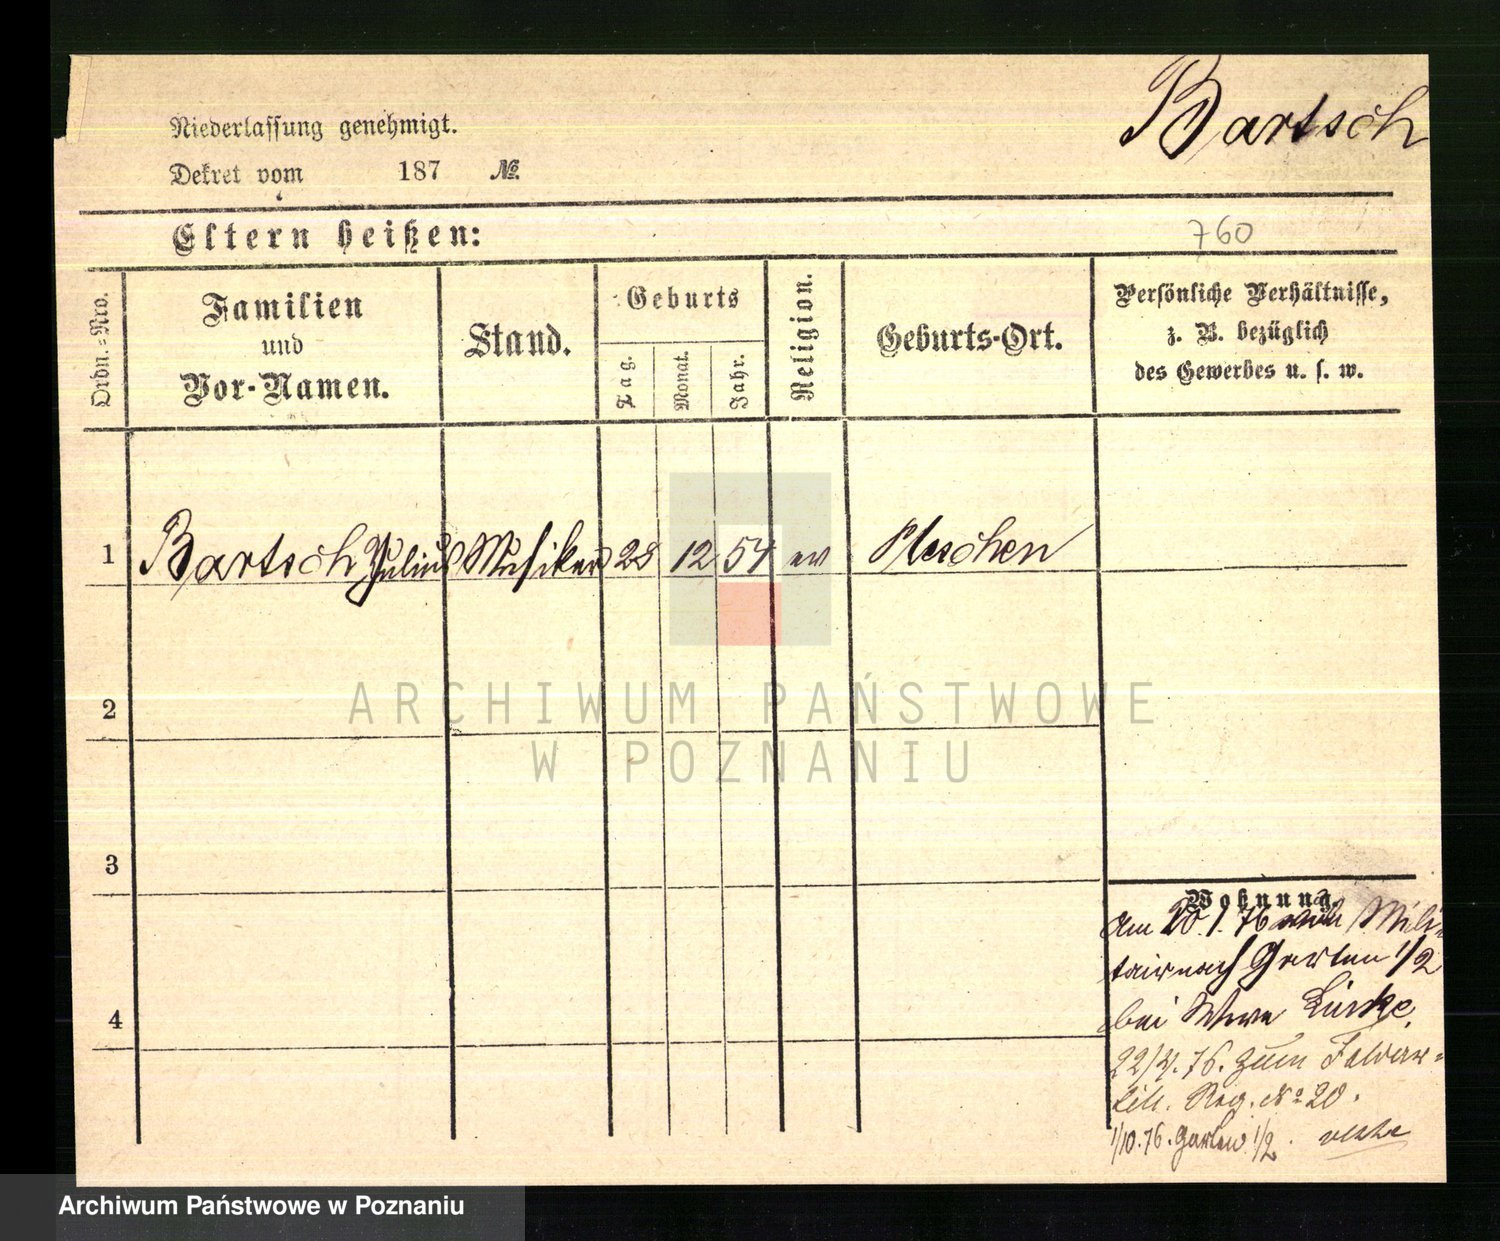 Bartsch
Niederlassung genehmigt.
Dekret vom 187 №.
Eltern heißen:
760
Ordn.-Nro.
Familien
und
Vor-Namen.
Stand.
Geburts
Tag.
Monat.
Jahr.
Religion.
Geburts-Ort.
Persönliche Verhältnisse,
z. B. bezüglich
des Gewerbes u. s. w.
1 Bartsch Julius Musiker 28 12 54 ev Pleschen
2
ARCHIWUM PAŃSTWOWE
W POZNANIU
3
Wohnung.
Am 20. 1. 76 Mili-
tair nach Garten 1/2
bei Wwe
22/4. 76. zum Feldar-
till. Reg. No 20.
1/10. 76. Garten 1/2.
4
Archiwum Państwowe w Poznaniu